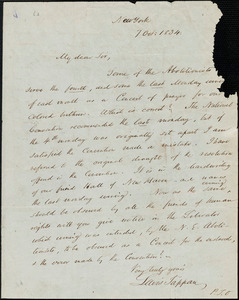 New York
7 Oct. 1834.
My dear Sir,
Some of the Abolitionists
have the fourth, and some the last Monday evening
of each month as a Concert of prayer for our
Colored brethren. Which is correct? The National
Convention recommended the last monday, but if
the 4th monday was originally set apart I am
satisfied the Convention made a mistake. I have
the original draught of the resolution
offered in the Convention. It is in the handwriting
of our friend of New Haven, and names
the last monday evening. Now as the
should be observed by all the friends of human
rights will you give notice in the Liberator
which evening was intended, by the N. E. Aboli-
tionists, to be observed as a Concert for the enslaved,
& the error made by the Convention?
Very truly yours
Lewis Tappan.
P.S.O